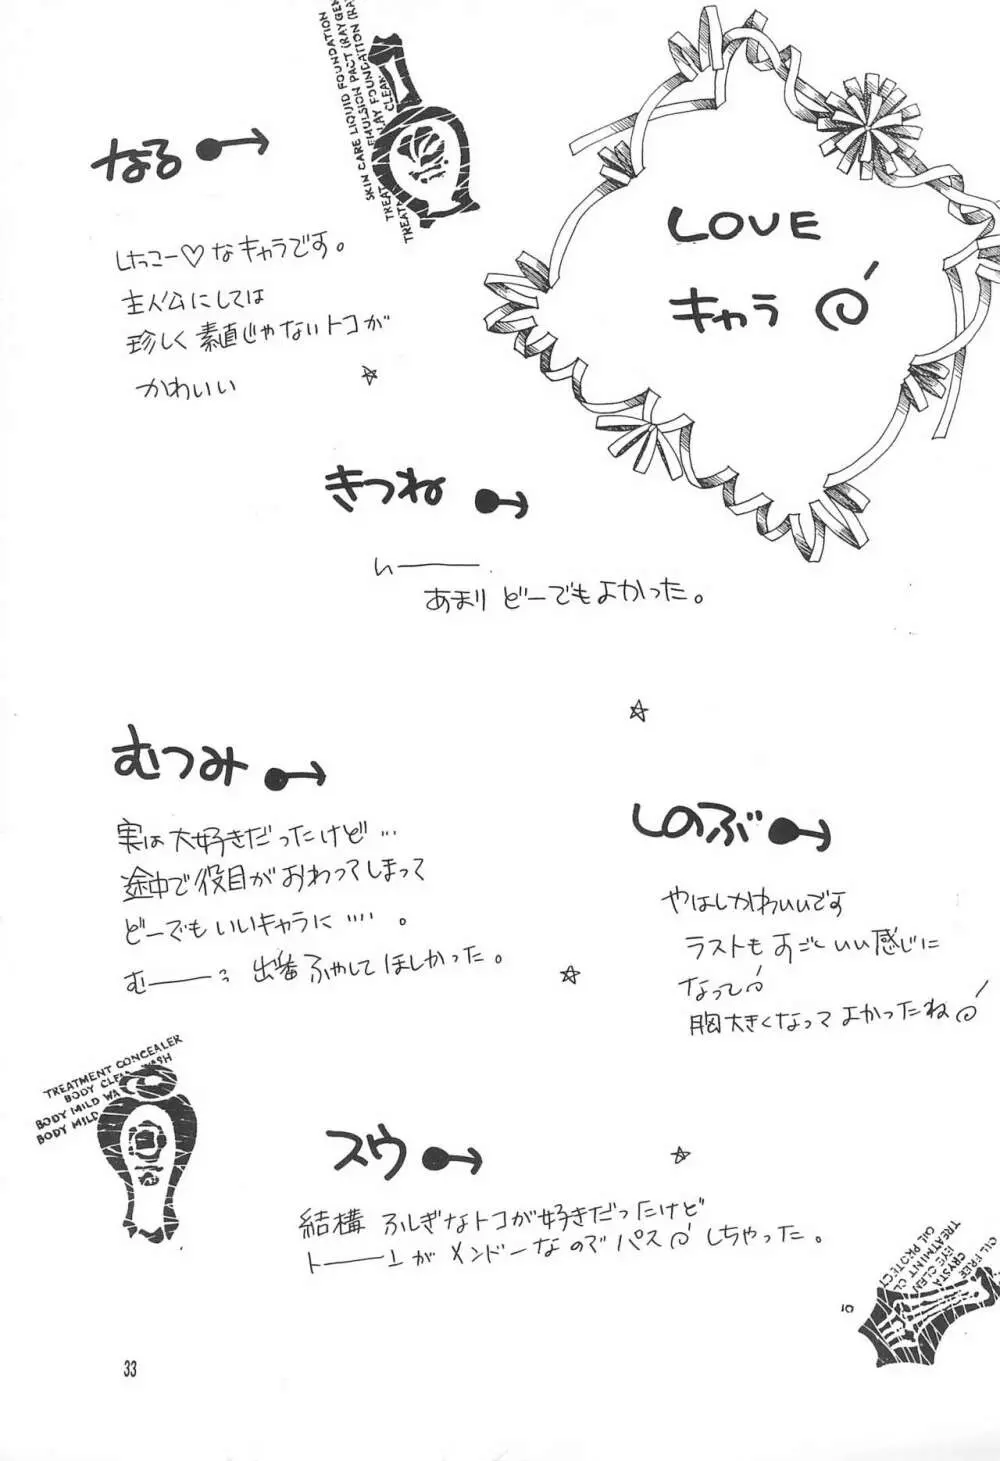 LOVE
キャラ
なる
しっこー♡なキャラです。
主人公にしては
珍しく素直じゃないトコが
かわいい
きつね
い———
あまりどーでもよかった。
むつみ
実は大好きだったけど…
途中で役目がおわってしまって
どーでもいいキャラに…。
む——う 出番ふやしてほしかった。
しのぶ
やはしかわいいです
ラストもすごくいい感じに
なってし
胸大きくなってよかったね
スウ
結構ふしぎなトコが好きだったけど
ト——ンがメンドーなのでパスしちゃった。
SKIN CARE LIQUID FOUNDATION
EMULSION PACT (RAY GE
TREATMENT CONCEALER
BODY CLE WASH
BODY MILD WA
BODY MILD
OIL FREE
CRYSTA
EYE CLEN
TREATMINT CL
OIL PROTECT
10
33